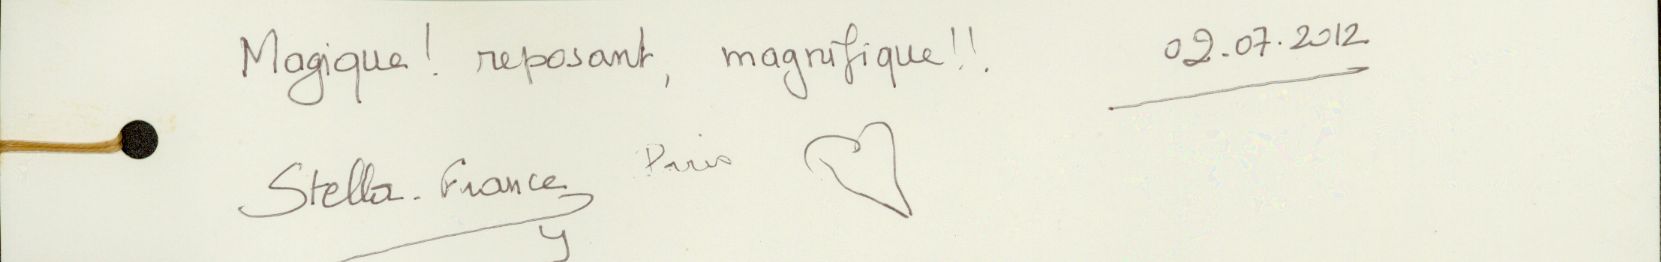 Magique! reposant, magnifique!! 02.07.2012
Stella. France Paris